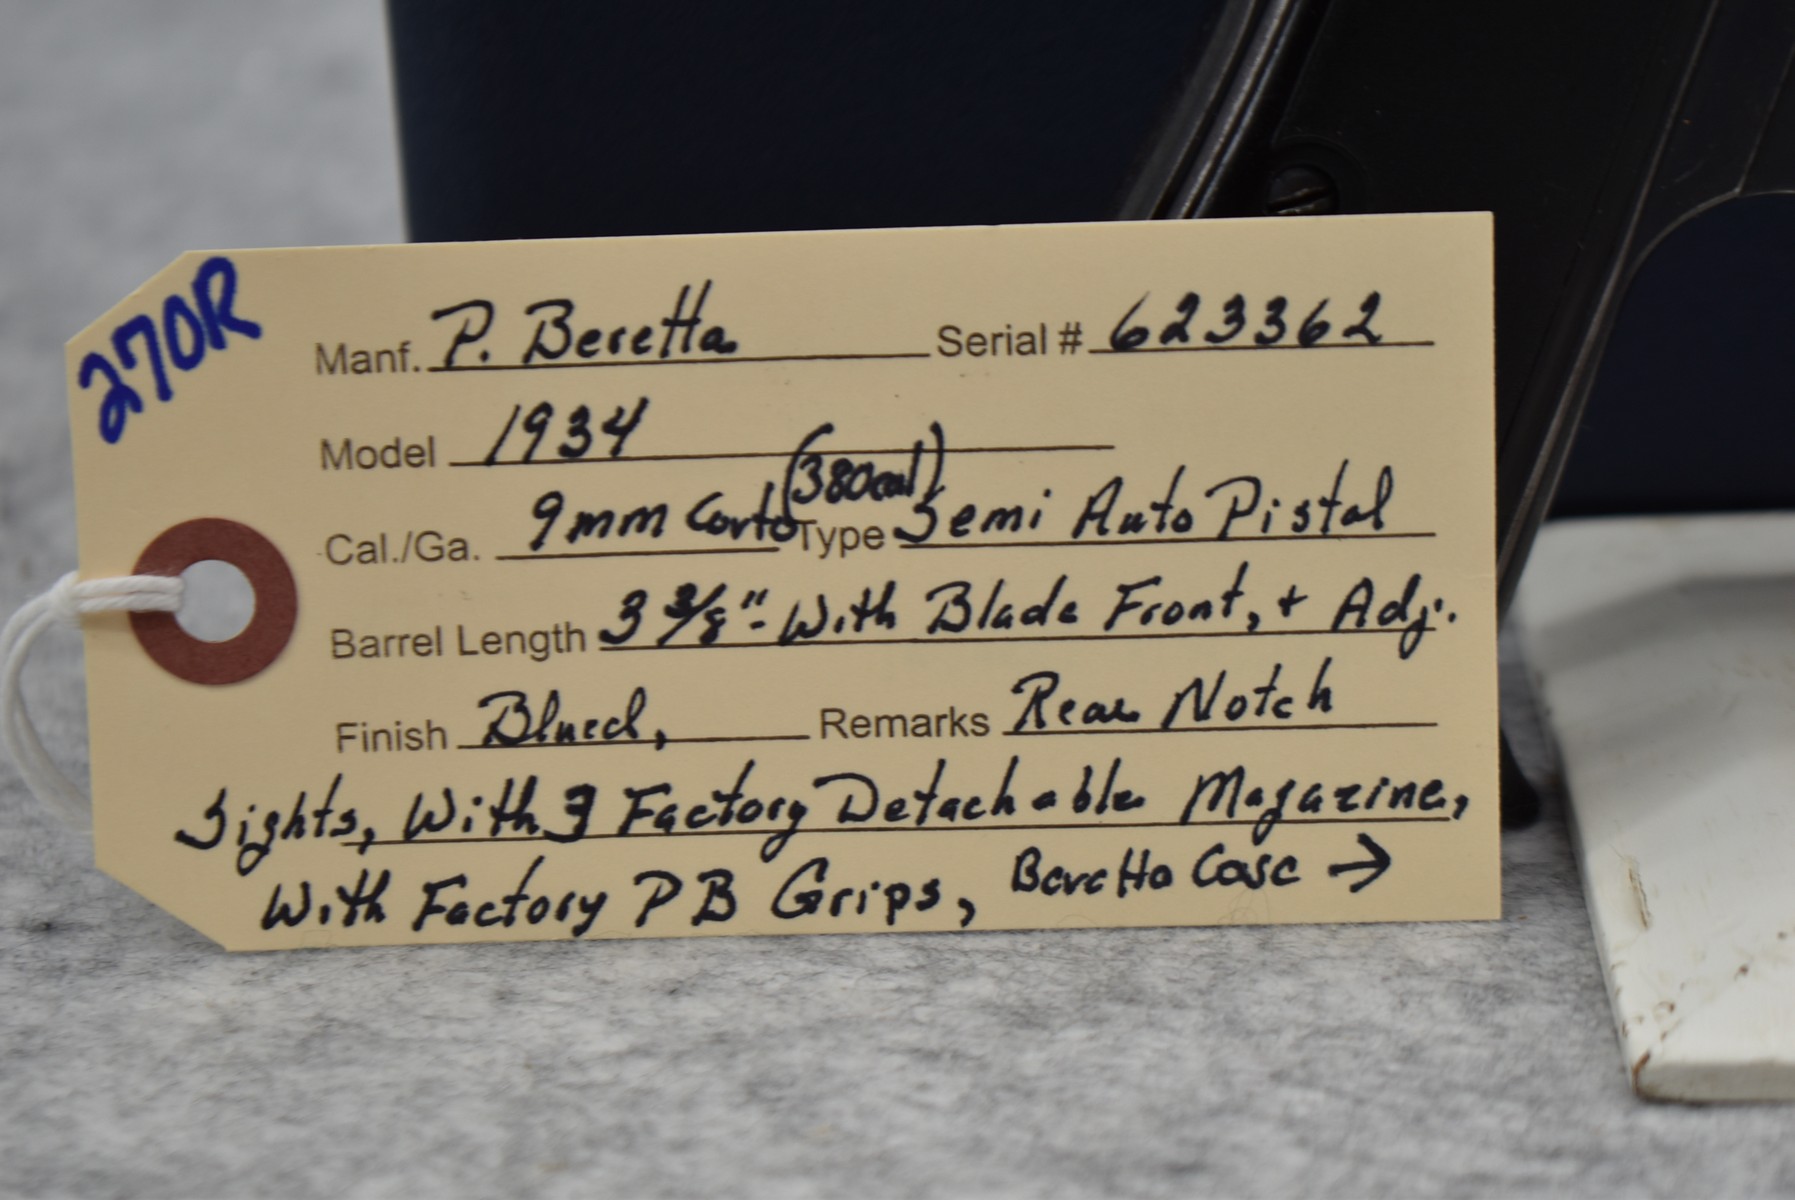 270R
Manf. P. Beretta Serial # 623362
Model 1934
Cal./Ga. 9mm Corto (380cal) Type Semi Auto Pistol
Barrel Length 3 3/8" - With Blade Front, + Adj.
Finish Blued, Remarks Rear Notch
Sights, With 3 Factory Detachable Magazine,
With Factory PB Grips, Beretta Case →